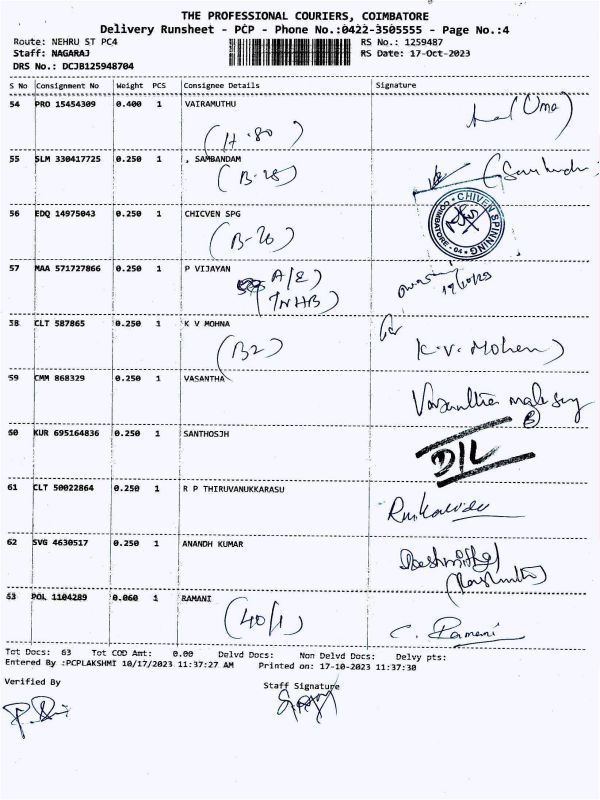 THE PROFESSIONAL COURIERS, COIMBATORE
Delivery Runsheet - PCP - Phone No.:0422-3505555 - Page No.:4
Route: NEHRU ST PC4 RS No.: 1259487
Staff: NAGARAJ RS Date: 17-Oct-2023
DRS No.: DCJB125948704
S No Consignment No Weight PCS Consignee Details Signature
54 PRO 15454309 0.400 1 VAIRAMUTHU
(H-80) (Uma)
55 SLM 330417725 0.250 1 , SAMBANDAM
(B-28)
56 EDQ 14975043 0.250 1 CHICVEN SPG
CHIVEN SPINNING COIMBATORE - 04
(B-26)
57 MAA 571727866 0.250 1 P VIJAYAN
A/E)
(TNHB)
58 CLT 587865 0.250 1 K V MOHNA
(B2) K.V. Mohan)
59 CMM 868329 0.250 1 VASANTHA
Vasantha
60 KUR 695164836 0.250 1 SANTHOSJH
D/L
61 CLT 50022864 0.250 1 R P THIRUVANUKKARASU
62 SVG 4630517 0.250 1 ANANDH KUMAR
63 POL 1104289 0.060 1 RAMANI
(40/1) C. Ramani
Tot Docs: 63 Tot COD Amt: 0.00 Delvd Docs: Non Delvd Docs: Delvy pts:
Entered By :PCPLAKSHMI 10/17/2023 11:37:27 AM Printed on: 17-10-2023 11:37:30
Verified By Staff Signature